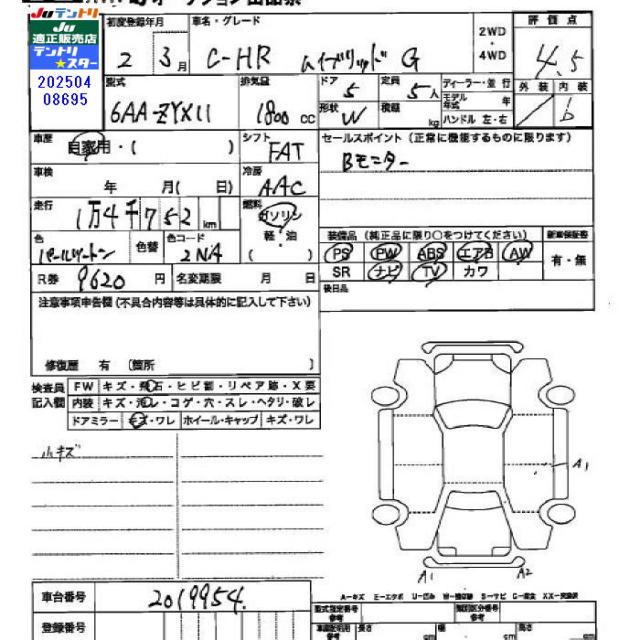 Juテントリ
Ju
適正販売店
テントリ
★スター
202504
08695
初度登録年月
車名・グレード
2 年 3月
C-HR ハイブリッド G
2WD
4WD
評価点
4.5
型式
6AA-ZYX11
排気量
1800 cc
ドア
5
定員
5人
形状
W
積載
kg
ディーラー・並行
モデル年式 年
ハンドル 左・右
外装 内装
b
車歴
自家用・( )
シフト
FAT
セールスポイント(正常に機能するものに限ります)
Bモニター
車検
年 月( 日)
冷房
AAC
走行
1万4千752 km
燃料
ガソリン
軽・油
( )
色
パールツートン
色替
色コード
2NA
装備品(純正品に限り○をつけてください)
新車保証書
PS PW ABS エアB AW
SR ナビ TV カワ
有・無
R券 9620 円
名変期限 月 日
後日品
注意事項申告欄(不具合内容等は具体的に記入して下さい)
修復歴 有 〔箇所 〕
検査員
記入欄
FW キズ・飛石・ヒビ割・リペア跡・X要
内装 キズ・汚レ・コゲ・穴・スレ・ヘタリ・破レ
ドアミラー キズ・ワレ ホイール・キャップ キズ・ワレ
小キズ
A1
A1 A2
車台番号 2019954
登録番号
A-キズ
型式指定番号
参考
類別区分番号
参考
長さ cm
幅 cm
高さ